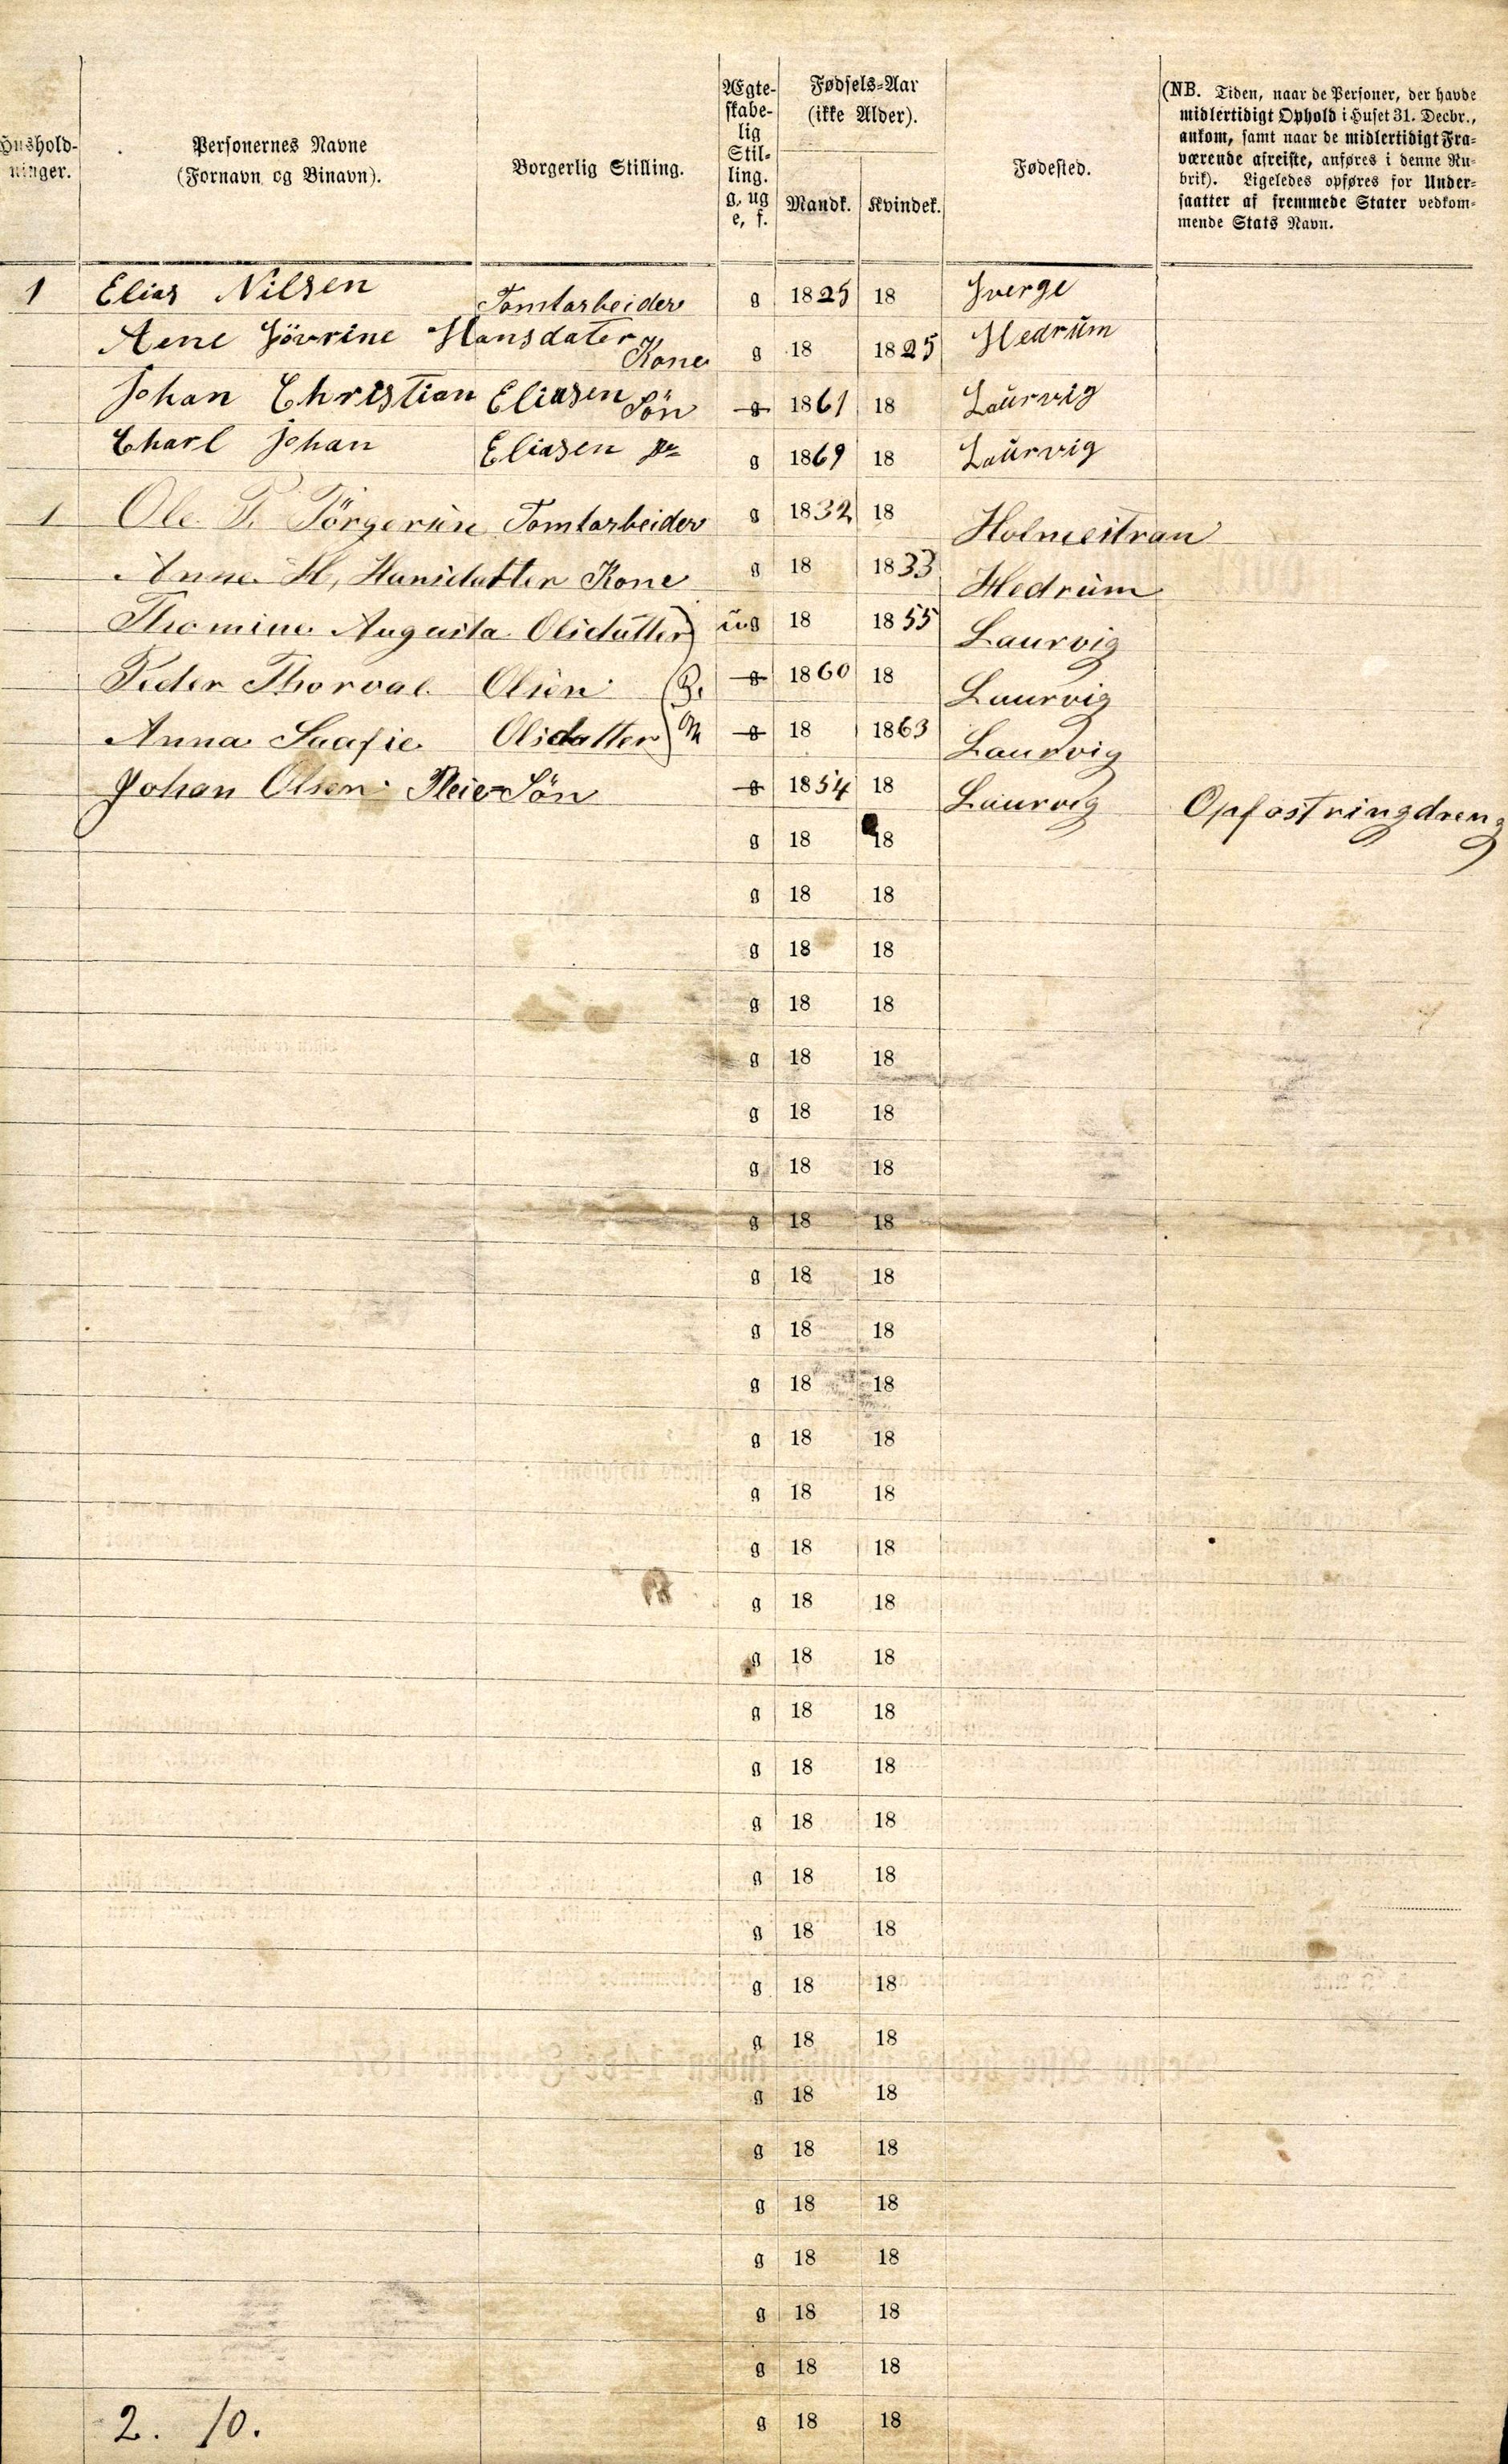 Hushold-
ninger.
Personernes Navne
(Fornavn og Binavn).
Borgerlig Stilling.
Ægte-
skabe-
lig
Stil-
ling.
g, ug
e, f.
Fødsels-Aar
(ikke Alder).
Mandk. Kvindek.
Fødested.
(NB. Tiden, naar de Personer, der havde
midlertidigt Ophold i Huset 31. Decbr.,
ankom, samt naar de midlertidigt Fra-
værende afreiste, anføres i denne Ru-
brik). Ligeledes opføres for Under-
saatter af fremmede Stater vedkom-
mende Stats Navn.
1 Elias Nilsen Tomtarbeider g 1825 18 Sverge
Aene Hansdater Kone g 18 1825 Hedrum
Johan Christian Eliasen Sön g 1861 18 Laurvig
Charl Johan Eliasen g 1869 18 Laurvig
1 Ole T. Törgersen Tomtarbeider g 1832 18 Holmestran
Anne H, Hansdatter Kone g 18 1833 Hedrum
Thomine Augusta Olsdatter ug 18 1855 Laurvig
Peder Thorval Olsen B. g 1860 18 Laurvig
Anna Saafie Olsdatter g 18 1863 Laurvig
Johan Olsen Pleie-Sön g 1854 18 Laurvig Opfostringdreng
g 18 18
g 18 18
g 18 18
g 18 18
g 18 18
g 18 18
g 18 18
g 18 18
g 18 18
g 18 18
g 18 18
g 18 18
g 18 18
g 18 18
g 18 18
g 18 18
g 18 18
g 18 18
g 18 18
g 18 18
g 18 18
g 18 18
g 18 18
g 18 18
g 18 18
g 18 18
g 18 18
g 18 18
g 18 18
2. 10. g 18 18